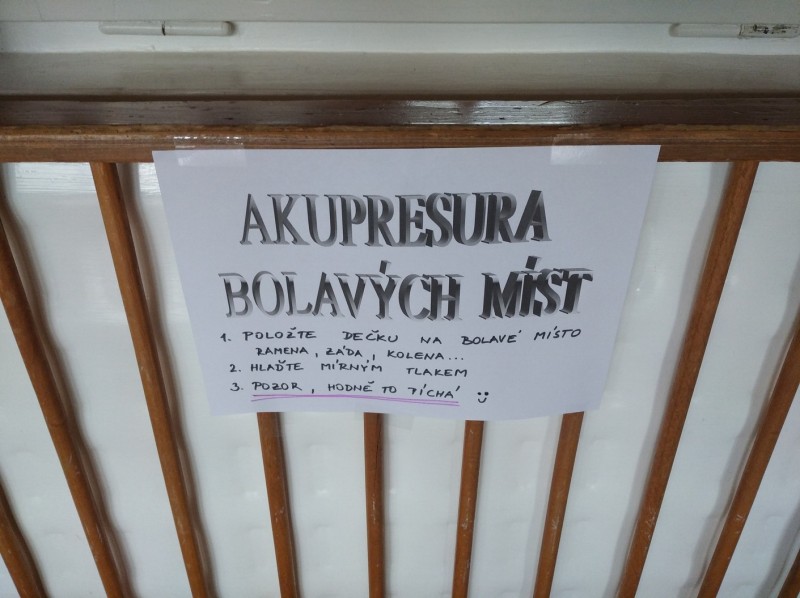 AKUPRESURA
BOLAVÝCH MÍST
1. POLOŽTE DEČKU NA BOLAVÉ MÍSTO
RAMENA, ZÁDA, KOLENA...
2. HLAĎTE MÍRNÝM TLAKEM
3. POZOR, HODNĚ TO PÍCHÁ